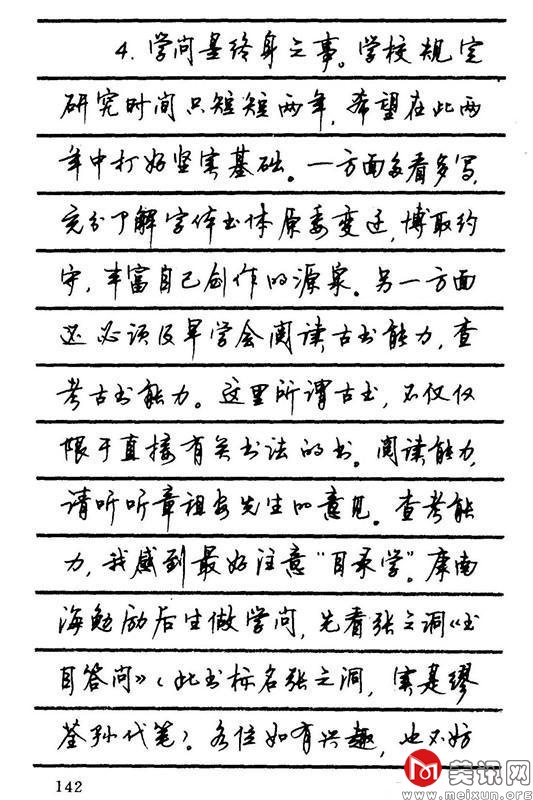 4. 学问是终身之事。学校规定
研究时间只短短两年，希望在此两
年中打好坚实基础。一方面多看多写，
充分了解字体书体原委变迁，博取约
守，丰富自己创作的源泉。另一方面
还必须及早学会阅读古书能力，查
考古书能力。这里所谓古书，不仅仅
限于直接有关书法的书。阅读能力，
请听听章祖安先生的意见。查考能
力，我感到最好注意“目录学”。康南
海勉励后生做学问，先看张之洞《书
目答问》（此书标名张之洞，实是缪
荃孙代笔）。各位如有兴趣，也不妨
142
美讯网
www.meixun.org